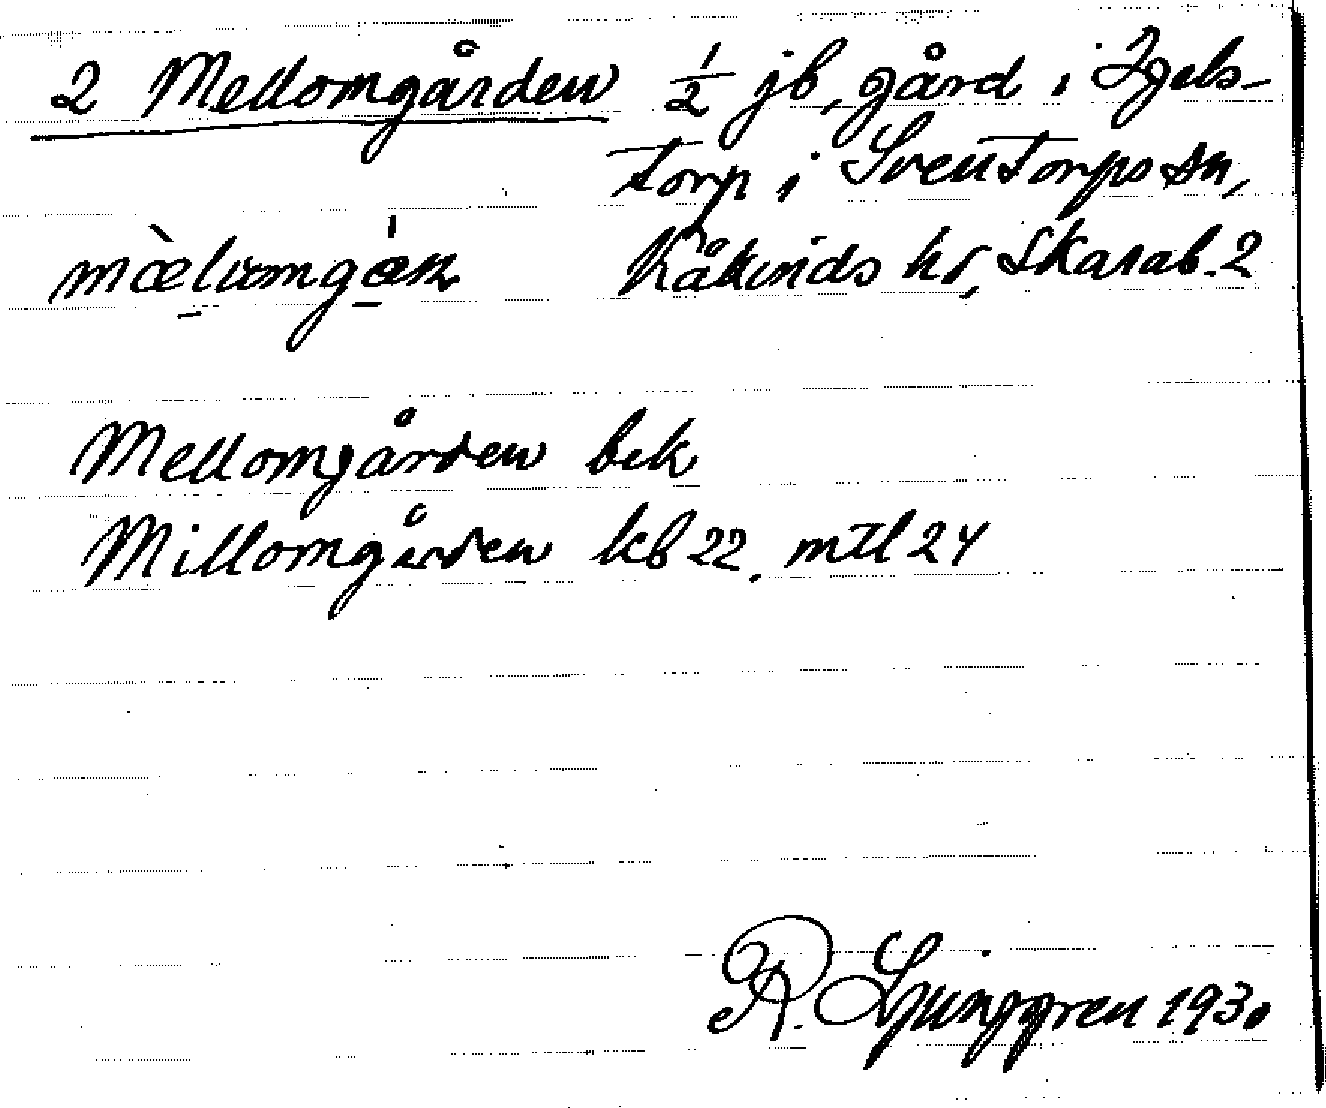 2 Mellomgården 1/2 jb, gård i Igels-
torp i Sventorps sn,
mæ̀lumgá̱n Kåkinds hd, Skarab. 2
Mellomgården bek
Millomgården kb 22, mtl 24
R. Ljunggren 1930